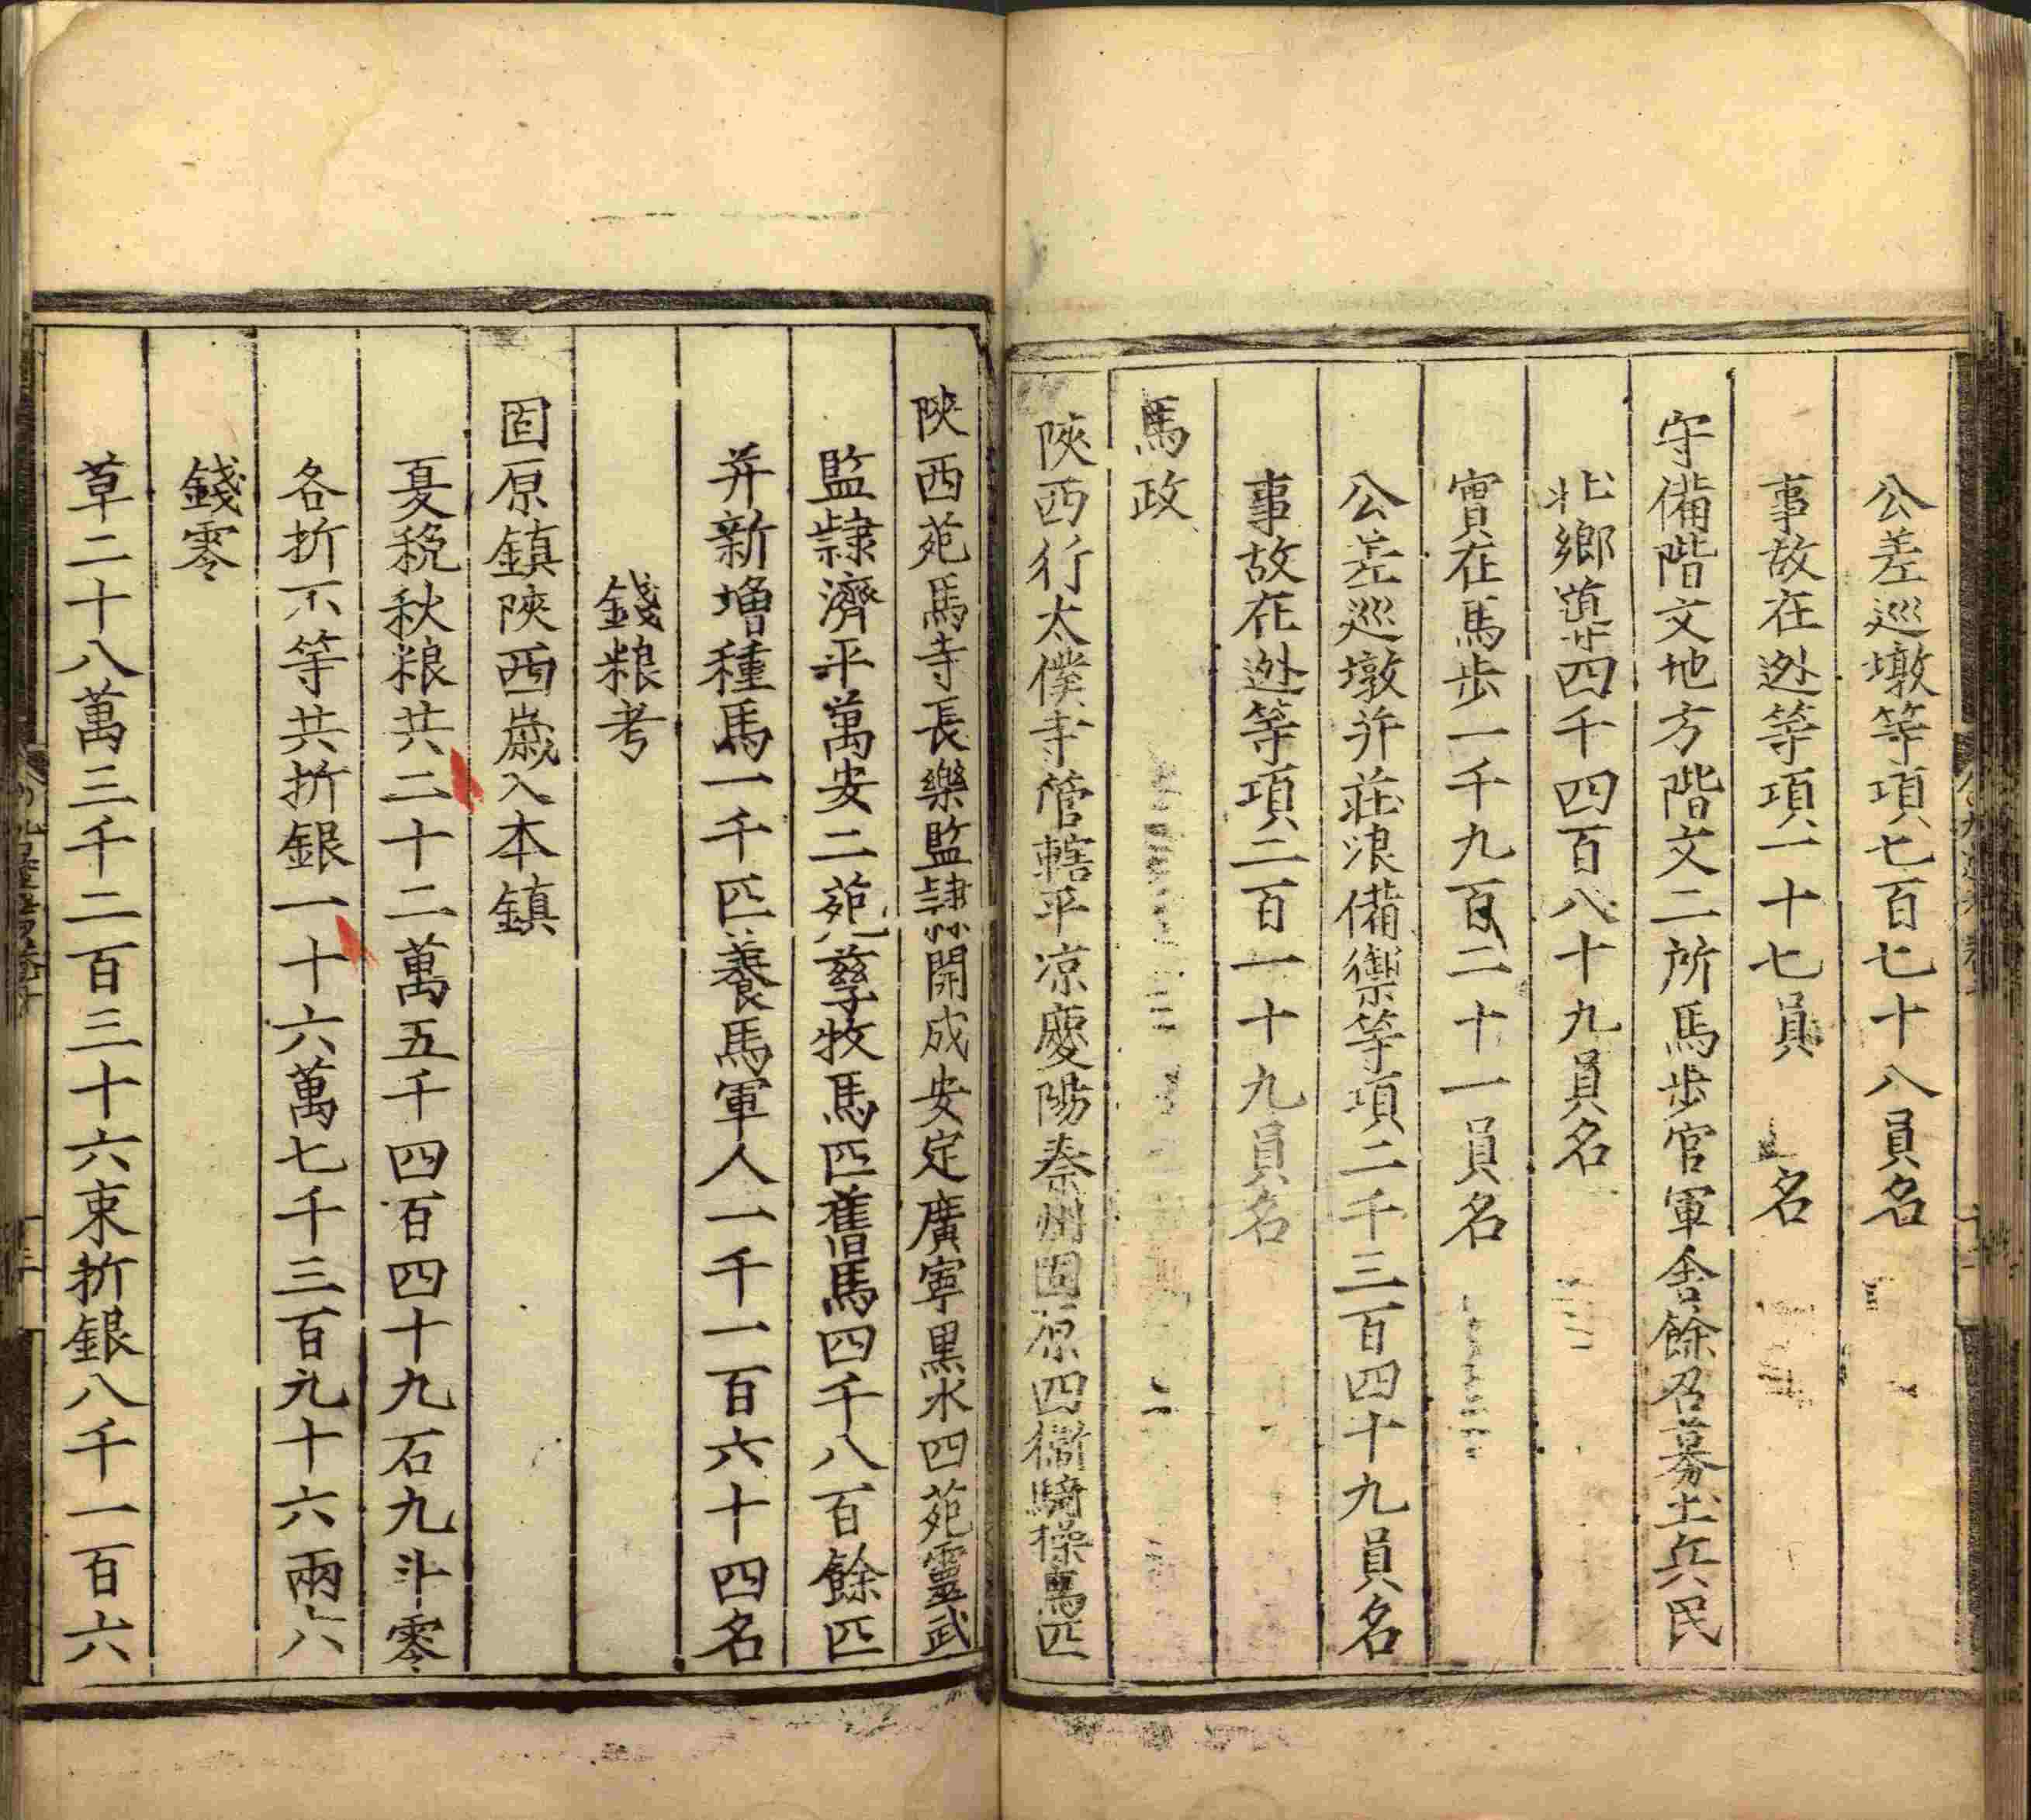 公差巡墩等項七百七十八員名
事故在迯等項一十七員名
守備階文地方階文二所馬步官軍舍餘召募土兵民
壯鄉導四千四百八十九員名
實在馬步一千九百二十一員名
公差巡墩并莊浪備禦等項二千三百四十九員名
事故在迯等項二百一十九員名
馬政
陝西行太僕寺管轄平凉慶陽秦州固原四衞騎操馬匹
陝西苑馬寺長樂監隷開成安定廣寧黒水四苑靈武
監隷濟平萬安二苑孳牧馬匹舊馬四千八百餘匹
并新增種馬一千匹養馬軍人一千一百六十四名
錢粮考
固原鎮陝西歲入本鎮
夏稅秋粮共二十二萬五千四百四十九石九斗零
各折不等共折銀一十六萬七千三百九十六兩六
錢零
草二十八萬三千二百三十六束折銀八千一百六